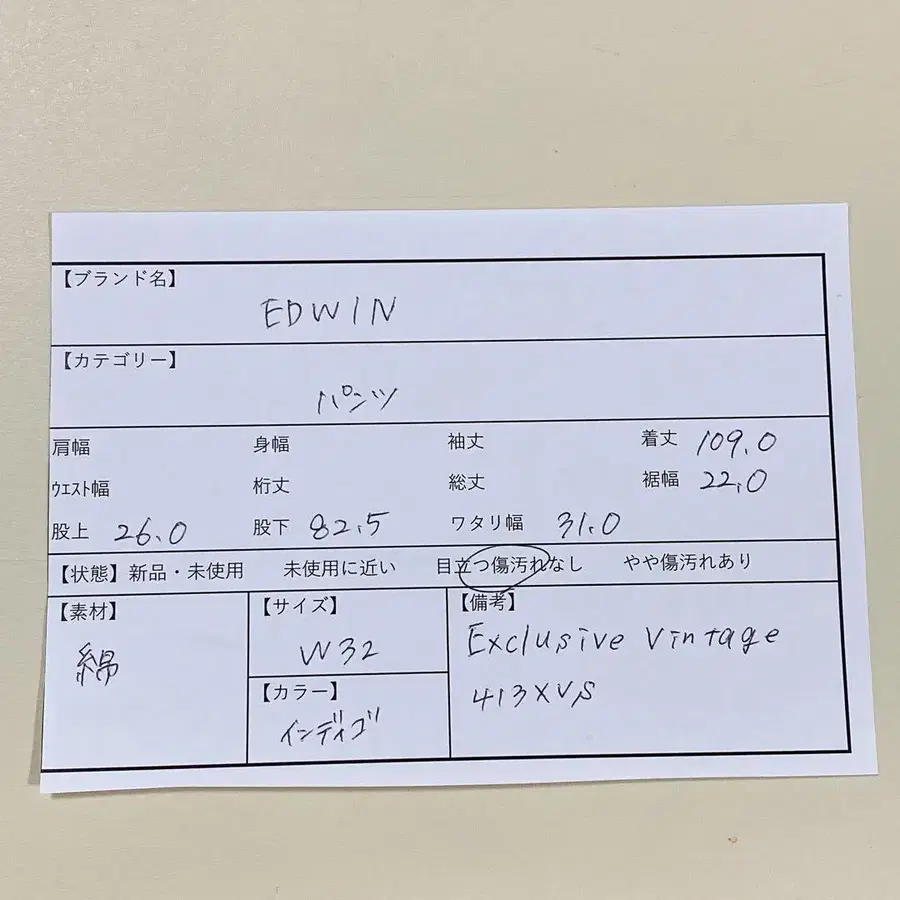 【ブランド名】
EDWIN
【カテゴリー】
パンツ
肩幅 身幅 袖丈 着丈 109.0
ウエスト幅 桁丈 総丈 裾幅 22.0
股上 26.0 股下 82.5 ワタリ幅 31.0
【状態】新品・未使用 未使用に近い 目立つ傷汚れなし やや傷汚れあり
【素材】
綿
【サイズ】
W32
【カラー】
インディゴ
【備考】
Exclusive Vintage
413XVS